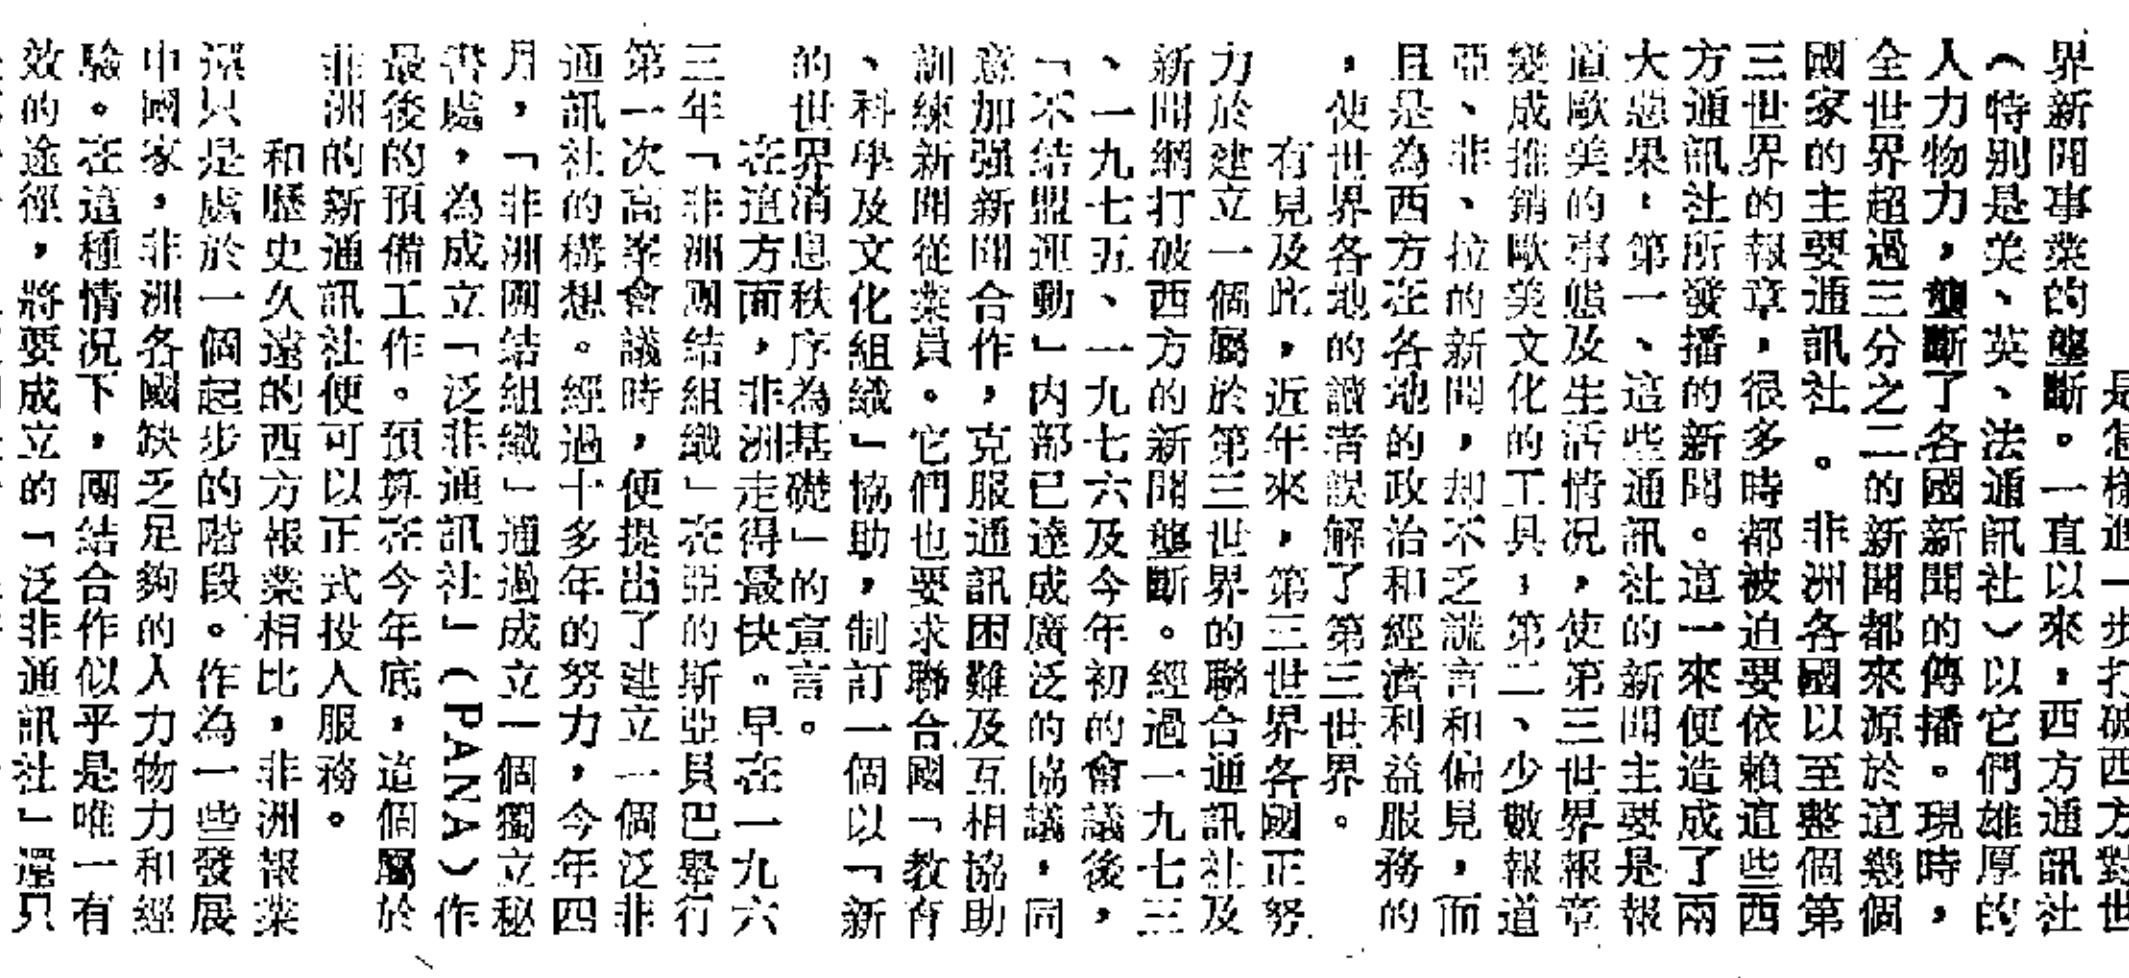 是怎樣進一步打破西方對世
界新聞事業的壟斷。一直以來，西方通訊社
（特別是美、英、法通訊社）以它們雄厚的
人力物力，壟斷了各國新聞的傳播。現時，
全世界超過三分之二的新聞都來源於這幾個
國家的主要通訊社。非洲各國以至整個第
三世界的報章，很多時都被迫要依賴這些西
方通訊社所發播的新聞。這一來便造成了兩
大惡果：第一、這些通訊社的新聞主要是報
道歐美的事態及生活情況，使第三世界報章
變成推銷歐美文化的工具；第二、少數報道
亞、非、拉的新聞，却不乏謊言和偏見，而
且是為西方在各地的政治和經濟利益服務的
，使世界各地的讀者誤解了第三世界。
有見及此，近年來，第三世界各國正努
力於建立一個屬於第三世界的聯合通訊社及
新聞網打破西方的新聞壟斷。經過一九七三
、一九七五、一九七六及今年初的會議後，
「不結盟運動」內部已達成廣泛的協議，同
意加强新聞合作，克服通訊困難及互相協助
訓練新聞從業員。它們也要求聯合國「教育
、科學及文化組織」協助，制訂一個以「新
的世界消息秩序為基礎」的宣言。
在這方面，非洲走得最快。早在一九六
三年「非洲團結組織」在亞的斯亞貝巴舉行
第一次高峯會議時，便提出了建立一個泛非
通訊社的構想。經過十多年的努力，今年四
月，「非洲團結組織」通過成立一個獨立秘
書處，為成立「泛非通訊社」（PANA）作
最後的預備工作。預算在今年底，這個屬於
非洲的新通訊社便可以正式投入服務。
和歷史久遠的西方報業相比，非洲報業
還只是處於一個起步的階段。作為一些發展
中國家，非洲各國缺乏足夠的人力物力和經
驗。在這種情況下，團結合作似乎是唯一有
效的途徑，將要成立的「泛非通訊社」還只